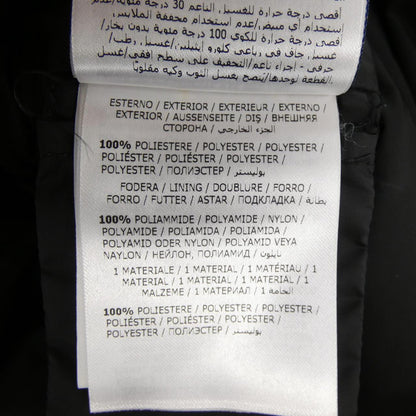 أقصى درجة حرارة للغسيل, الناعم 30 درجة مئوية/عدم
استخدام أي مبيض/عدم استخدام مجففة الملابس
أقصى درجة حرارة للكوي 100 درجة مئوية بدون بخار/
غسيل جاف في رباعي كلورو إيثيلين/غسيل رطب
حرفي - إجراء ناعم/التجفيف على سطح أفقي/
القطعة لوحدها/ينصح بغسل الثوب وكيه مقلوبًا
ESTERNO / EXTERIOR / EXTERIEUR / EXTERNO /
EXTERIOR / AUSSENSEITE / DIŞ / ВНЕШНЯЯ
СТОРОНА / الجزء الخارجي
100% POLIESTERE / POLYESTER / POLYESTER /
POLIÉSTER / POLIÉSTER / POLYESTER /
POLYESTER / ПОЛИЭСТЕР / بوليستر
FODERA / LINING / DOUBLURE / FORRO /
FORRO / FUTTER / ASTAR / ПОДКЛАДКА / بطانة
100% POLIAMMIDE / POLYAMIDE / NYLON /
POLYAMIDE / POLIAMIDA / POLIAMIDA /
POLYAMID ODER NYLON / POLYAMID VEYA
NAYLON / НЕЙЛОН, ПОЛИАМИД / نايلون
1 MATERIALE / 1 MATERIAL / 1 MATÉRIAU / 1
MATERIAL / 1 MATERIAL / 1 MATERIAL / 1
MALZEME / 1 МАТЕРИАЛ / 1 الخامة
100% POLIESTERE / POLYESTER / POLYESTER /
POLIÉSTER / POLIÉSTER / POLYESTER /
POLYESTER / ПОЛИЭСТЕР / بوليستر